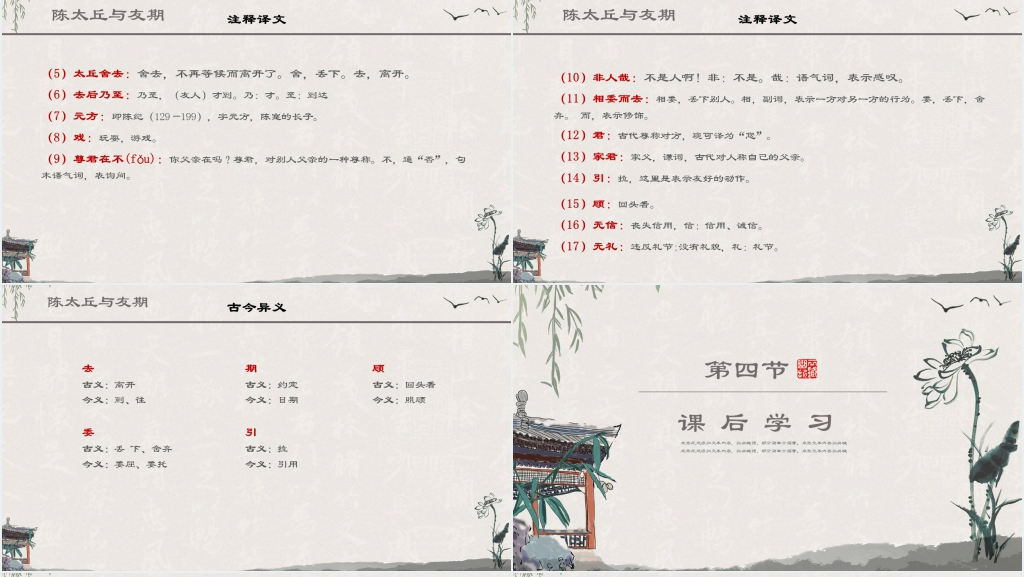 陈太丘与友期
注释译文
(5) 太丘舍去：舍去，不再等候而离开了。舍，丢下。去，离开。
(6) 去后乃至：乃至，（友人）才到。乃：才。至：到达
(7) 元方：即陈纪（129－199），字元方，陈寔的长子。
(8) 戏：玩耍，游戏。
(9) 尊君在不(fǒu)：你父亲在吗？尊君，对别人父亲的一种尊称。不，通“否”，句
末语气词，表询问。
陈太丘与友期
注释译文
(10) 非人哉：不是人啊！非：不是。哉：语气词，表示感叹。
(11) 相委而去：相委，丢下别人。相，副词，表示一方对另一方的行为。委，丢下，舍
弃。 而，表示修饰。
(12) 君：古代尊称对方，现可译为“您”。
(13) 家君：家父，谦词，古代对人称自己的父亲。
(14) 引：拉，这里是表示友好的动作。
(15) 顾：回头看。
(16) 无信：丧失信用，信：信用、诚信。
(17) 无礼：违反礼节;没有礼貌，礼：礼节。
陈太丘与友期
古今异义
去 期 顾
古义：离开 古义：约定 古义：回头看
今义：到、往 今义：日期 今义：照顾
委 引
古义：丢 下、舍弃 古义：拉
今义：委屈、委托 今义：引用
第四节
课后学习